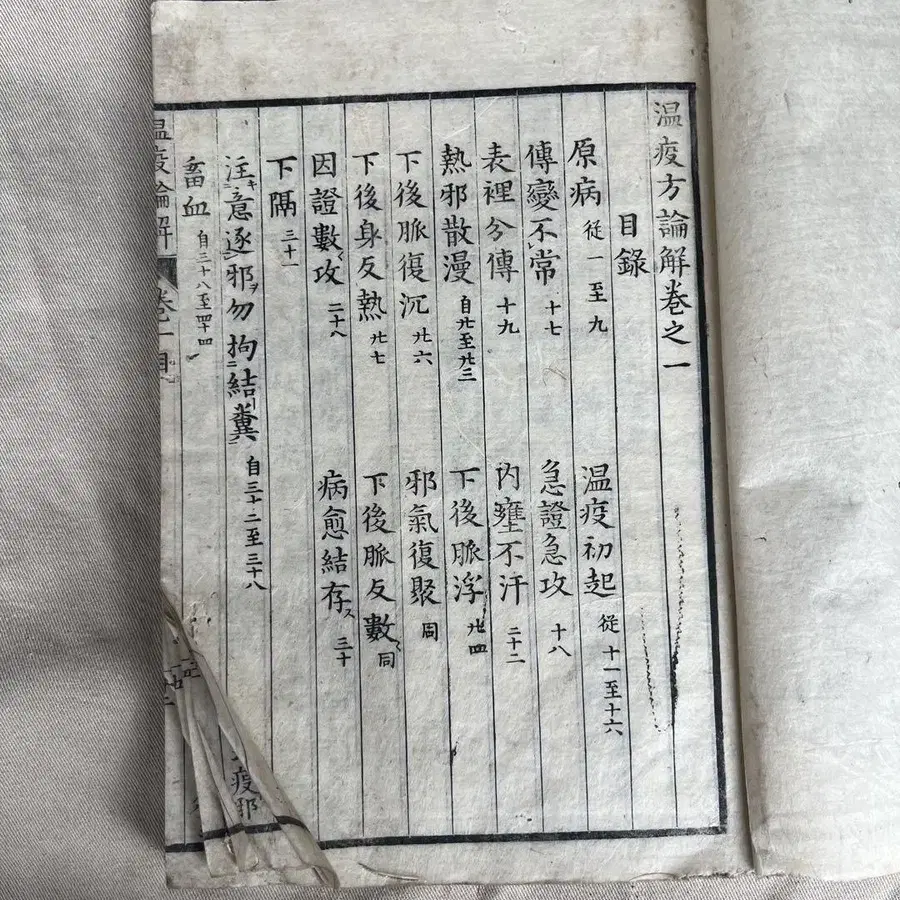 温疫方論解卷之一
目錄
原病 從一至九 温疫初起 從十一至十六
傳變不常 十七 急證急攻 十八
表裡分傳 十九 內壅不汗 二十二
熱邪散漫 自廿至廿三 下後脈浮 廿四
下後脈復沉 廿六 邪氣復聚 同
下後身反熱 廿七 下後脈反數 同
因證數攻 二十八 病愈結存 三十
下隔 三十一
注意逐邪勿拘結糞 自三十二至三十八
畜血 自三十八至四十四
疫邪
温疫論解 卷一目